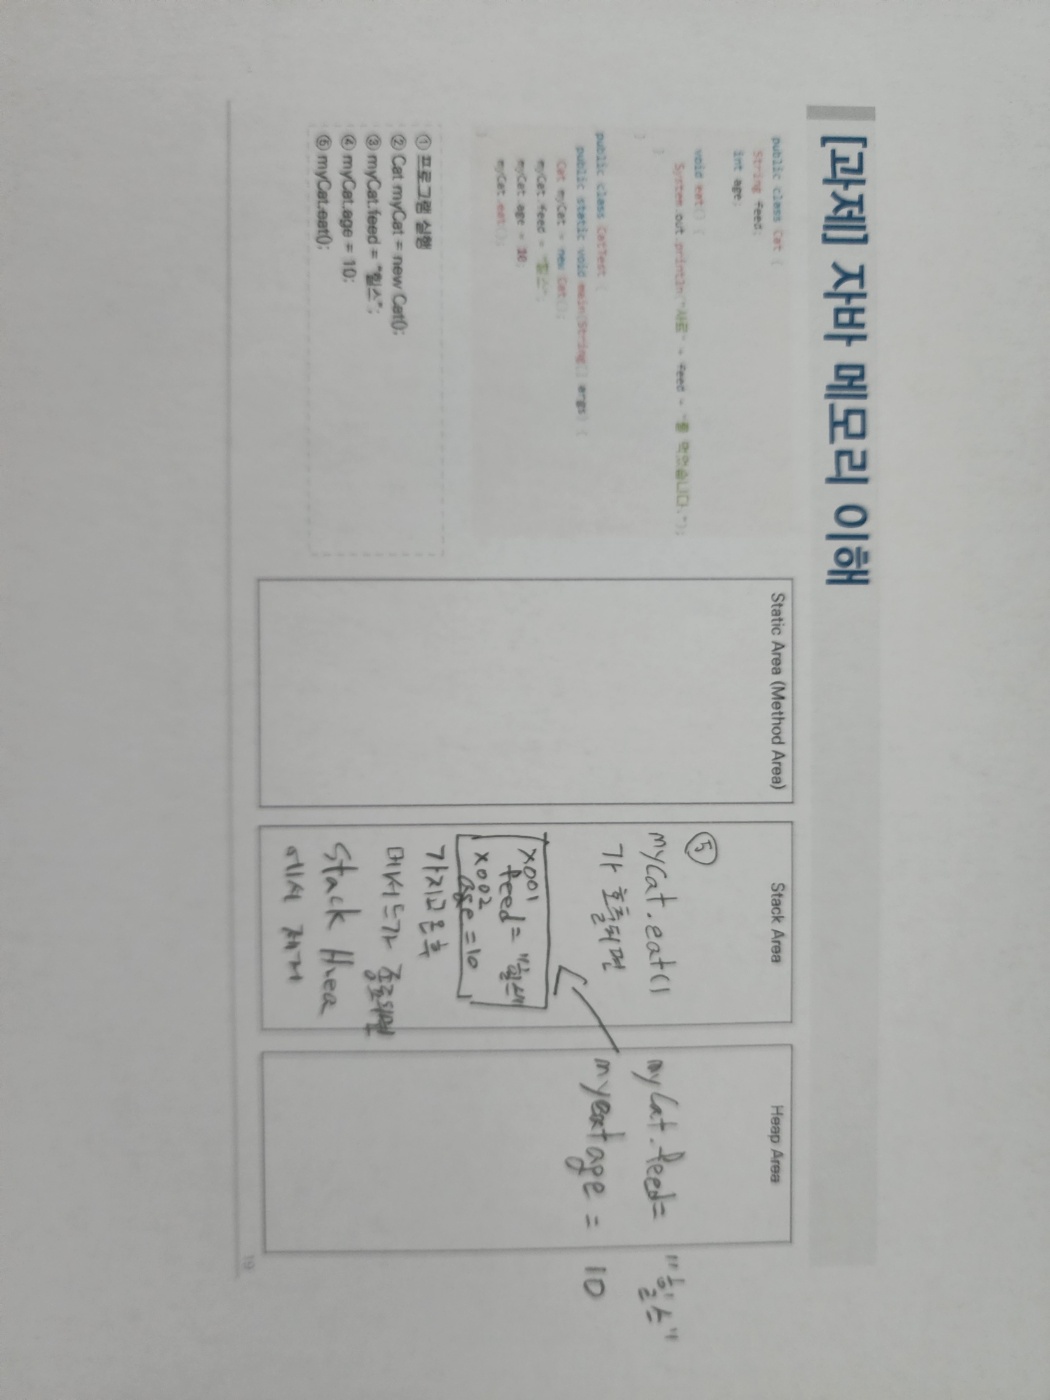 [과제] 자바 메모리 이해
public class Cat {
String feed;
int age;
void eat() {
System.out.println("사료" + feed + "를 먹었습니다.");
}
}
public class CatTest {
public static void main(String[] args) {
Cat myCat = new Cat();
myCat.feed = "힐스";
myCat.age = 10;
myCat.eat();
}
① 프로그램 실행
② Cat myCat = new Cat();
③ myCat.feed = "힐스";
④ myCat.age = 10;
⑤ myCat.eat();
Static Area (Method Area)
Stack Area
⑤
myCat.eat()
가 호출되면
x001
feed = "힐스"
x002
age = 10
가지고 온 후
메서드가 종료되면
Stack Area
에서 제거
Heap Area
myCat.feed = "힐스"
mycat age = 10
19